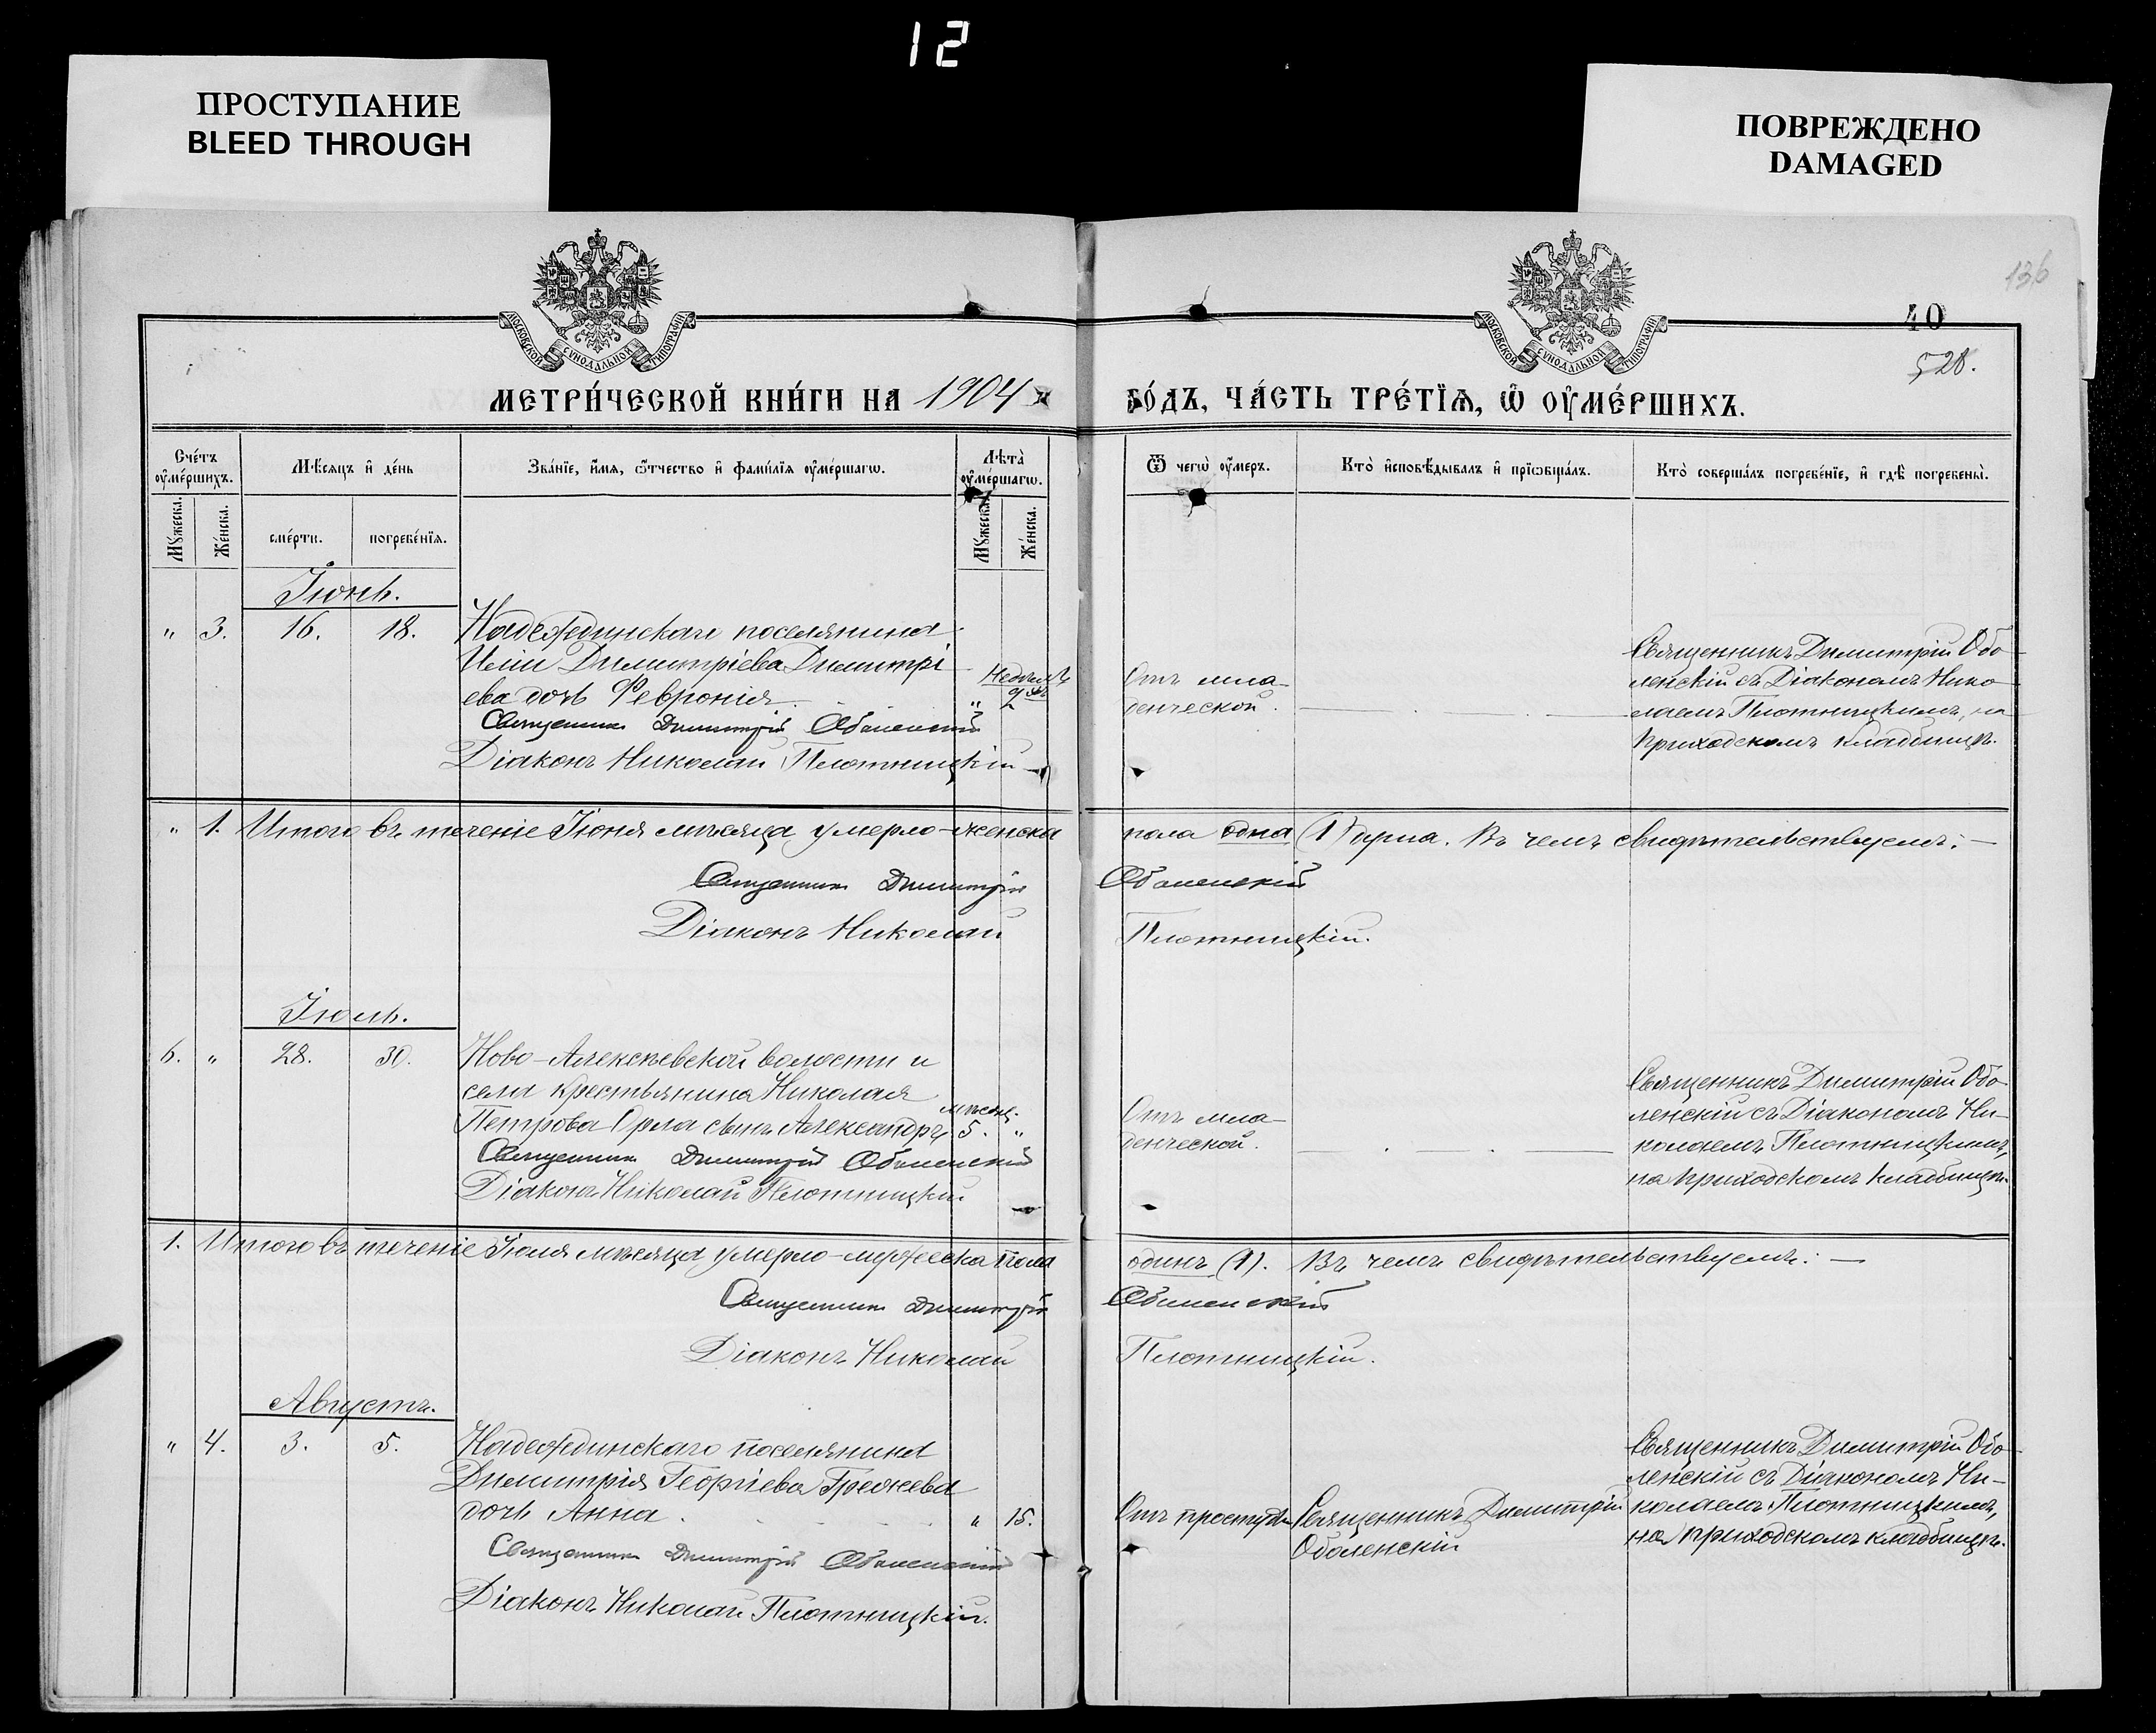 12
ПРОСТУПАНИЕ
BLEED THROUGH
ПОВРЕЖДЕНО
DAMAGED
136
40
528.
МОСКОВСКОЙ СѴНОДАЛЬНОЙ ТИПОГРАФІИ
МОСКОВСКОЙ СѴНОДАЛЬНОЙ ТИПОГРАФІИ
МЕТРИ́ЧЕСКОЙ КНИ́ГИ НА 1904
ГО́ДЪ, ЧА́СТЬ ТРЕ́ТЇѦ, Ѡ҆ ОУ҆МЕ́РШИХЪ.
Сче́тъ оу҆ме́ршихъ.
Мꙋ́жеска.
Же́нска.
Мѣ́сяцъ и҆ де́нь
сме́рти.
погребе́нїя.
Зва́нїе, и҆́мя, ѻ҆́тчество и҆ фами́лїя оу҆ме́ршагѡ.
Лѣта̀ оу҆ме́ршагѡ.
Мꙋ́жеска.
Же́нска.
Ѿ чегѡ̀ оу҆́меръ.
Кто̀ и҆сповѣ́дывалъ и҆ прїѡбща́лъ.
Кто̀ соверша́лъ погребе́нїе, и҆ гдѣ̀ погребены̀.
Іюнь.
" 3. 16. 18. Надеждинскаго поселянина
Иліи Димитріева Димитрі
ева дочь Февронія. "
Священникъ Димитрій Оболенскій
Діаконъ Николай Плотницкій
Отъ мла-
денческой.
Священникъ Димитрій Обо-
ленскій съ Діакономъ Нико-
лаемъ Плотницкимъ, на
приходскомъ кладбищѣ.
" 1. Итого въ теченіе Іюня мѣсяца умерло женска
пола одна (1) душа. Въ чемъ свидѣтельствуемъ: —
Священникъ Димитрій Оболенскій
Діаконъ Николай Плотницкій.
Іюль.
6. " 28. 30. Ново-Алексѣевской волости и
села крестьянина Николая
мѣсяц.
Петрова Орла сынъ Александръ 5. "
Священникъ Димитрій Оболенскій
Діаконъ Николай Плотницкій
Отъ мла-
денческой.
Священникъ Димитрій Обо-
ленскій съ Діакономъ Ни-
колаемъ Плотницкимъ,
на приходскомъ кладбищѣ.
1. Итого въ теченіе Іюля мѣсяца умерло мужеска пола
одинъ (1). Въ чемъ свидѣтельствуемъ: —
Священникъ Димитрій Оболенскій
Діаконъ Николай Плотницкій.
Августъ.
" 4. 3. 5. Надеждинскаго поселянина
Димитрія Георгіева Греждева
дочь Анна. " 15.
Священникъ Димитрій Оболенскій
Діаконъ Николай Плотницкій.
Отъ простуды
Священникъ Димитрій
Оболенскій
Священникъ Димитрій Обо-
ленскій съ Діакономъ Ни-
колаемъ Плотницкимъ,
на приходскомъ кладбищѣ.